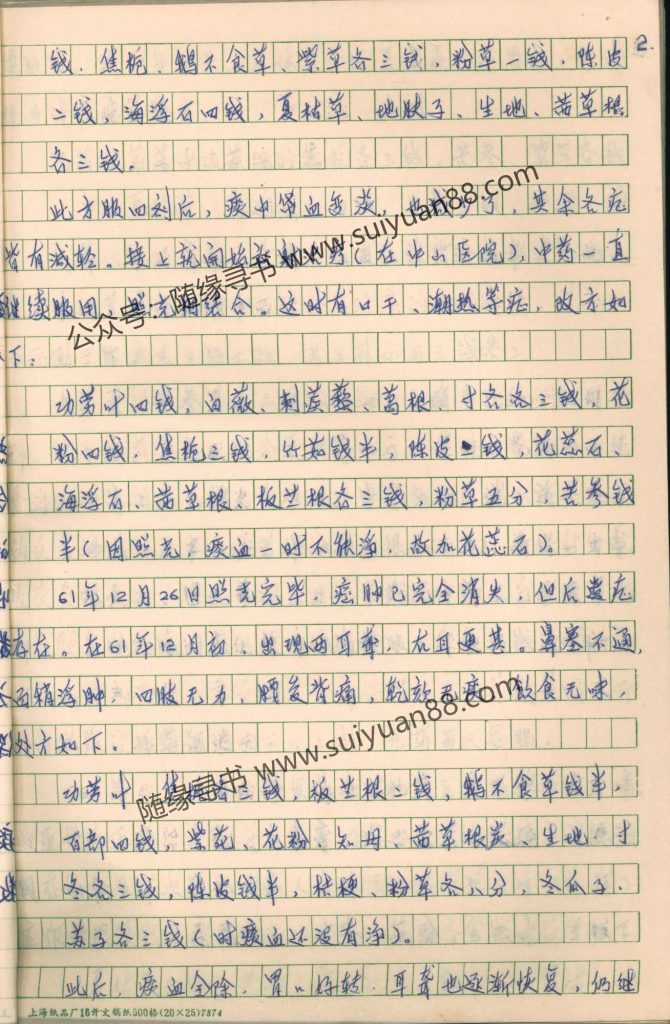 2.
钱、焦栀、鹅不食草、紫草各三钱，粉草一钱，陈皮
二钱，海浮石四钱，夏枯草、地肤子、生地、茜草根
各三钱。
此方服四剂后，痰中带血
其余各症
皆有减轻。接上就开始
（在中山医院），中药一直
继续服用
结合。这时有口干、潮热等症，改方如
下：
功劳叶四钱，白薇、刺蒺藜、葛根、寸冬各三钱，花
粉四钱，焦栀三钱，竹茹钱半，陈皮二钱，花蕊石、
海浮石、茜草根、板兰根各三钱，粉草五分，苦参钱
半（因照光，痰血一时不能净，故加花蕊石）。
61年12月26日照光完毕，癌肿已完全消失，但后遗症
存在。在61年12月初，出现两耳聋，右耳更甚。鼻塞不通，
面稍浮肿，四肢无力，腰
背痛，乾咳无痰，饮食无味，
处方如下。
功劳叶、焦栀各三钱，板兰根二钱，鹅不食草钱半，
百部四钱，紫苑、花粉、知母、茜草根炭、生地、寸
冬各三钱，陈皮钱半，桔梗、粉草各八分，冬瓜子、
苏子各三钱（时痰血还没有净）。
此后，痰血全除，胃口好转，耳聋也逐渐恢复，仍继
上海纸品厂16开文稿纸500格(20×25)7874
公众号：随缘寻书 www.suiyuan88.com
随缘寻书 www.suiyuan88.com